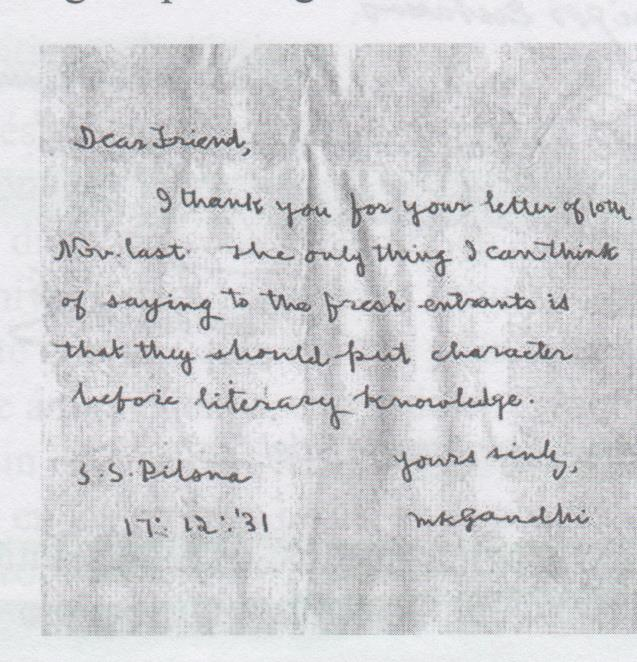 Dear Friend,
I thank you for your letter of 10th
Nov. last the only thing I can think
of saying to the fresh entrants is
that they should put character
before literary knowledge.
yours sinly,
S.S. Pilsna
17:12:'31
mkGandhi